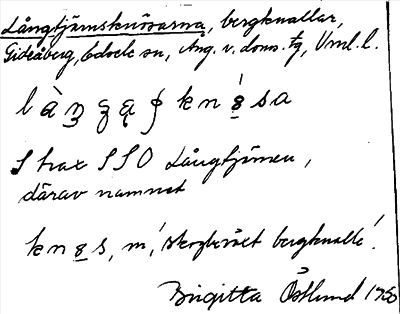 Långtjärnsknösarna, bergknallar,
Gideåberg, Edsele sn, Ång. v. doms. tg, Vml. l.
knø̱sa
Strax SSO Långtjärnen,
därav namnet
knø̱s, m, 'skogbeväxt bergknalle'.
Birgitta Östlund 1950